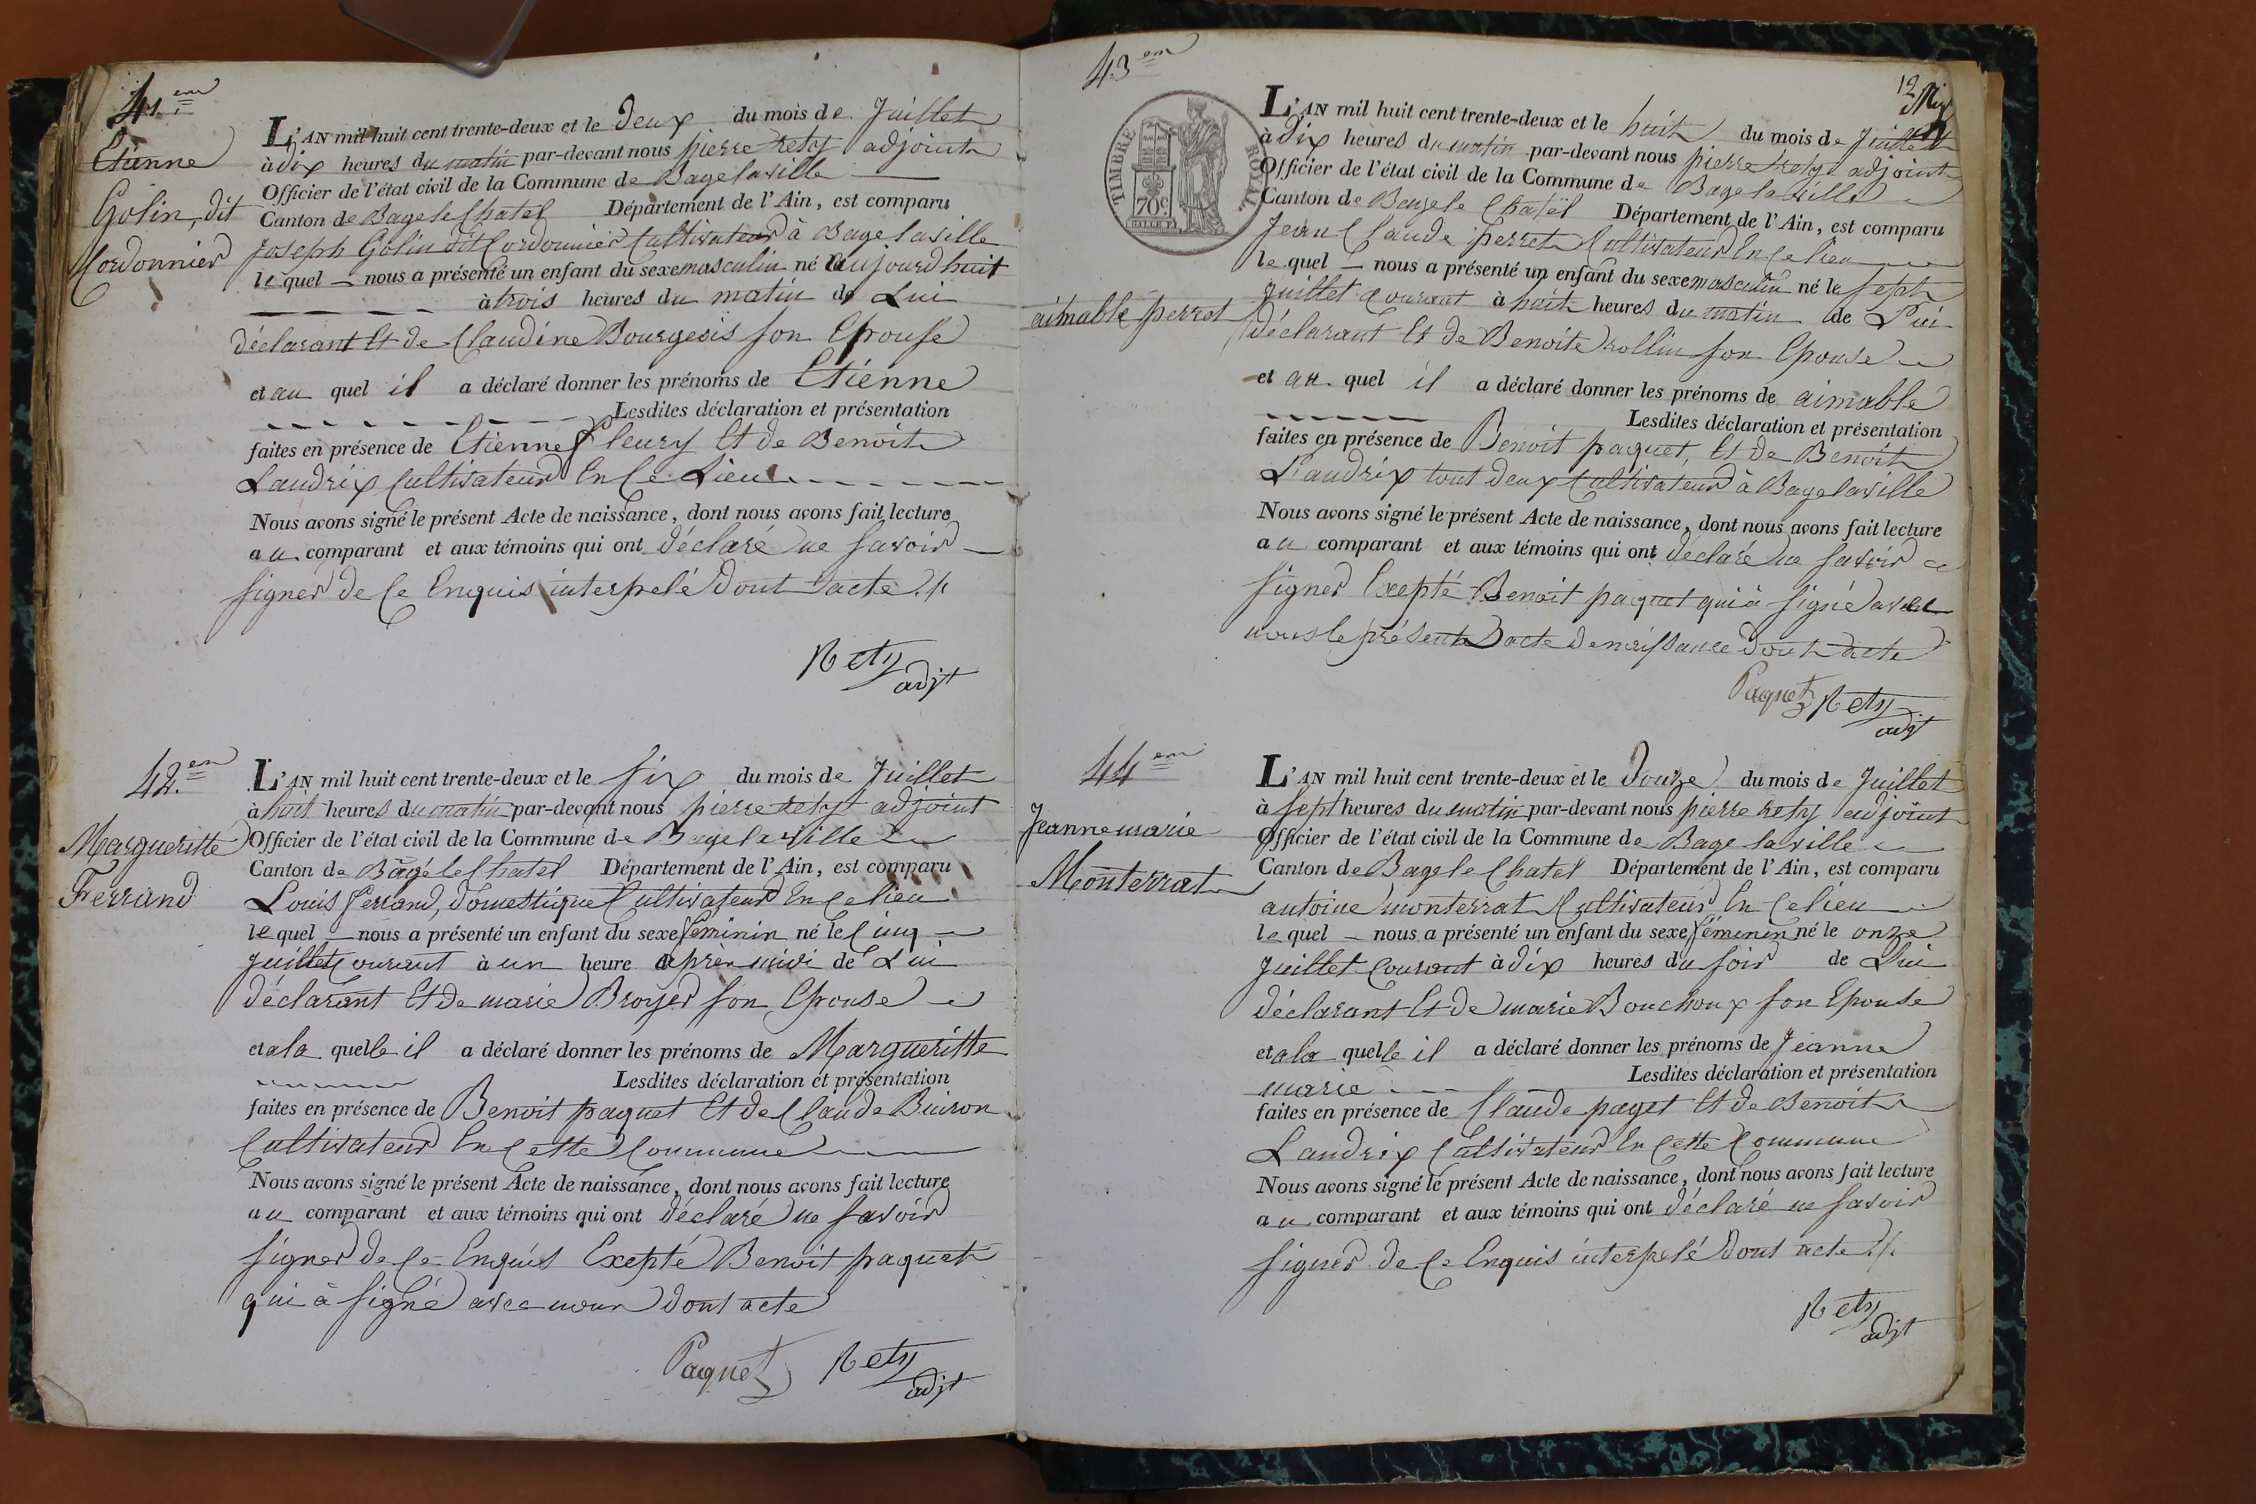 41.em
Etienne
Golin, dit
Cordonnier
L'AN mil huit cent trente-deux et le deux du mois de Juillet
à dix heures du matin par-devant nous pierre rety adjoint
Officier de l'état civil de la Commune de Bagelaville
Canton de Bage le Chatel Département de l'Ain, est comparu
Joseph Golin dit Cordonnier Cultivateur à Bagelaville
lequel nous a présenté un enfant du sexe masculin né aujourd'huit
à trois heures du matin de Lui
déclarant Et de Claudine Bourgeois son Epouse
et au quel il a déclaré donner les prénoms de Etienne
Lesdites déclaration et présentation
faites en présence de Etienne fleury Et de Benoit
Laudrix Cultivateur En Ce Lieu
Nous avons signé le présent Acte de naissance, dont nous avons fait lecture
au comparant et aux témoins qui ont déclaré ne savoir
signer de Ce Enquis interpelé dont acte ./.
Rety
adjt
42.em
Margueritte
Ferrand
L'AN mil huit cent trente-deux et le six du mois de Juillet
à huit heures du matin par-devant nous pierre rety adjoint
Officier de l'état civil de la Commune de Bagelaville
Canton de Bagé le Chatel Département de l'Ain, est comparu
Louis ferrand, domestique Cultivateur En Ce lieu
lequel nous a présenté un enfant du sexe féminin né le Cinq
Juillet Courant à un heure après midi de Lui
déclarant Et de marie Broyer son Epouse
et a la quelle il a déclaré donner les prénoms de Margueritte
Lesdites déclaration et présentation
faites en présence de Benoit paquet Et de Claude Buiron
Cultivateur En Cette Commune
Nous avons signé le présent Acte de naissance, dont nous avons fait lecture
au comparant et aux témoins qui ont déclaré ne savoir
signer de Ce Enquis Exepté Benoit paquet
qui à signé avec nous dont acte
Paquet Rety
adjt
43em
12
TIMBRE ROYAL.
70c
aimable perret
L'AN mil huit cent trente-deux et le huit du mois de Juillet
à dix heures du matin par-devant nous pierre rety adjoint
Officier de l'état civil de la Commune de Bage la ville
Canton de Bage le Chatel Département de l'Ain, est comparu
Jean Claude perret Cultivateur En Ce lieu
lequel nous a présenté un enfant du sexe masculin né le sept
Juillet Courant à huit heures du matin de Lui
déclarant Et de Benoite rollin son Epouse
et au quel il a déclaré donner les prénoms de aimable
Lesdites déclaration et présentation
faites en présence de Benoit paquet, Et de Benoit
Laudrix tout deux Cultivateur à Bagelaville
Nous avons signé le présent Acte de naissance, dont nous avons fait lecture
au comparant et aux témoins qui ont déclaré ne savoir
signer Exepté Benoit paquet qui à signé avec
nous le présent acte de naissance dont acte
Paquet Rety
adjt
44em
Jeanne marie
Monterrat
L'AN mil huit cent trente-deux et le douze du mois de Juillet
à sept heures du matin par-devant nous pierre rety adjoint
Officier de l'état civil de la Commune de Bage la ville
Canton de Bage le Chatel Département de l'Ain, est comparu
antoine monterrat Cultivateur En Ce lieu
lequel nous a présenté un enfant du sexe féminin né le onze
Juillet Courant à dix heures du soir de Lui
déclarant Et de marie Bouchoux son Epouse
et a la quelle il a déclaré donner les prénoms de Jeanne
marie Lesdites déclaration et présentation
faites en présence de Claude paget Et de Benoit
Laudrix Cultivateur En Cette Commune
Nous avons signé le présent Acte de naissance, dont nous avons fait lecture
au comparant et aux témoins qui ont déclaré ne savoir
signer de Ce Enquis interpelé dont acte ./.
Rety
adjt